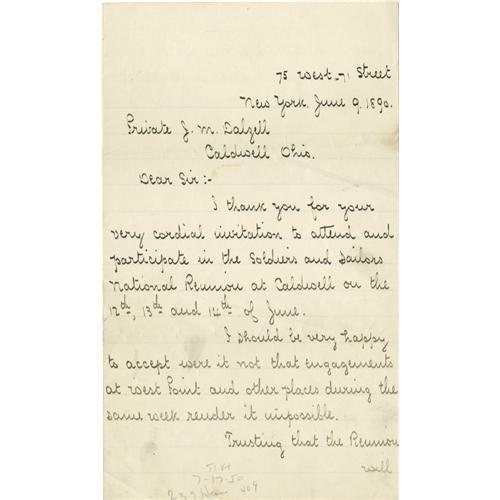 75 West 71 Street
New York, June 9. 1890.
Private J. M. Dalzell
Caldwell Ohio.
Dear Sir:-
I thank you for your
very cordial invitation to attend and
participate in the Soldiers and Sailors
National Reunion at Caldwell on the
12th, 13th and 14th of June.
I should be very happy
to accept were it not that engagements
at West Point and other places during the
same week render it impossible.
Trusting that the Reunion
will
7-17-50